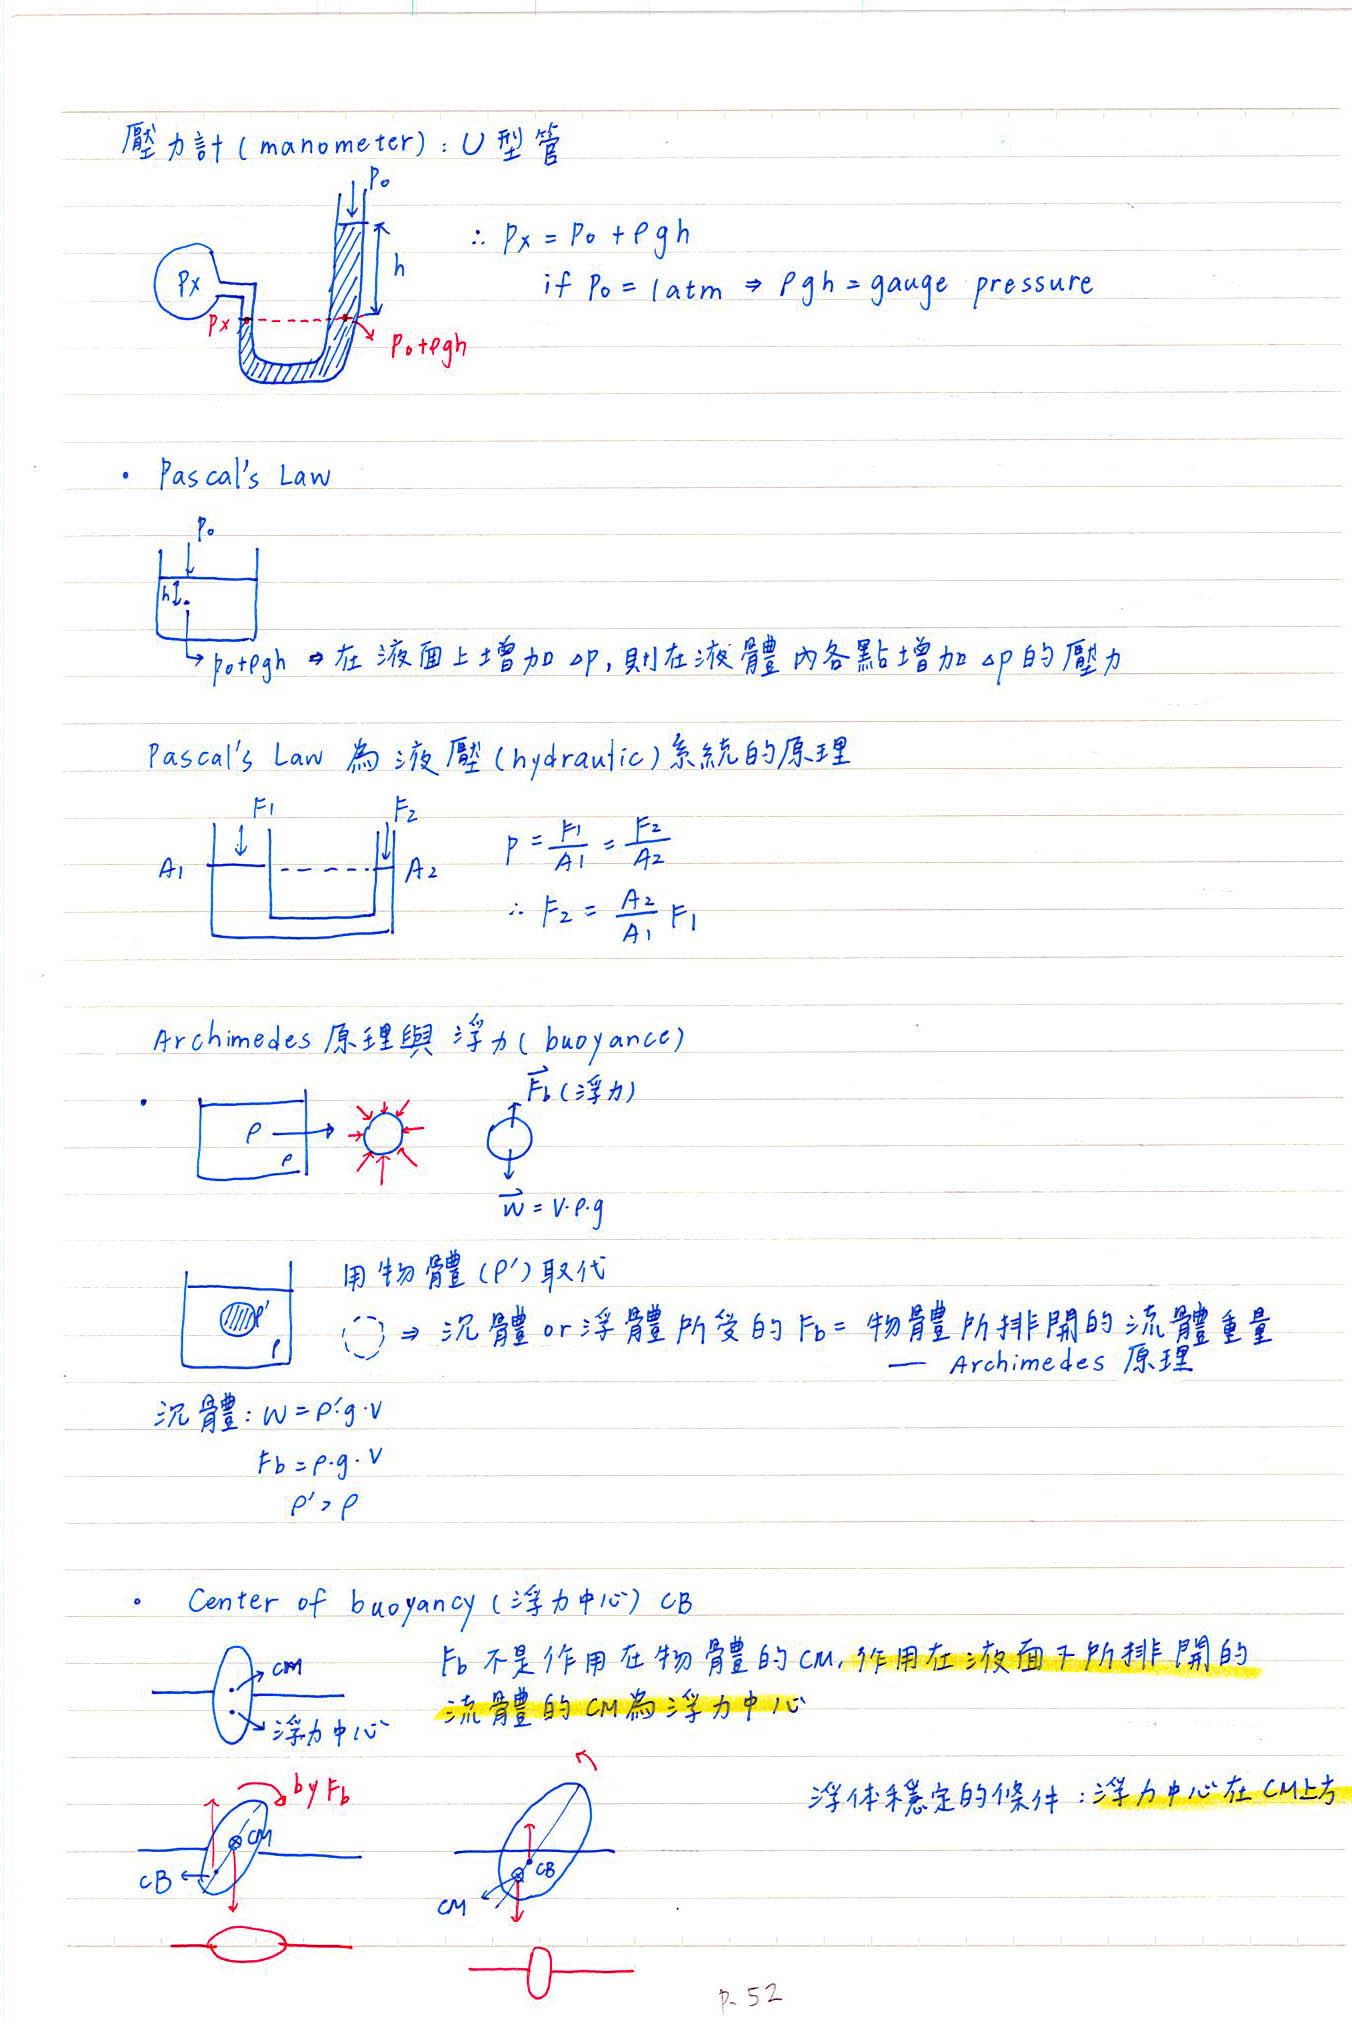 壓力計(manometer):U型管
P₀
∴ Px = P₀ + ρgh
h
Px
if P₀ = 1atm ⇒ ρgh = gauge pressure
Px
P₀+ρgh
• Pascal's Law
P₀
h
P₀+ρgh ⇒ 在液面上增加 ΔP, 則在液體內各點增加 ΔP 的壓力
Pascal's Law 為液壓(hydraulic)系統的原理
F₁ F₂
A₁ A₂
P = F₁/A₁ = F₂/A₂
∴ F₂ = A₂/A₁ F₁
Archimedes 原理與浮力(buoyance)
•
F⃗b(浮力)
ρ
ρ
W⃗ = V·ρ·g
用物體(ρ')取代
ρ'
ρ
⇒ 沉體 or 浮體所受的 Fb = 物體所排開的流體重量
— Archimedes 原理
沉體: W = ρ'·g·V
Fb = ρ·g·V
ρ' > ρ
• Center of buoyancy(浮力中心) CB
CM
浮力中心
Fb 不是作用在物體的CM, 作用在液面下所排開的
流體的CM為浮力中心
by Fb
CM
CB
CB
CM
浮体穩定的條件:浮力中心在CM上方
P. 52